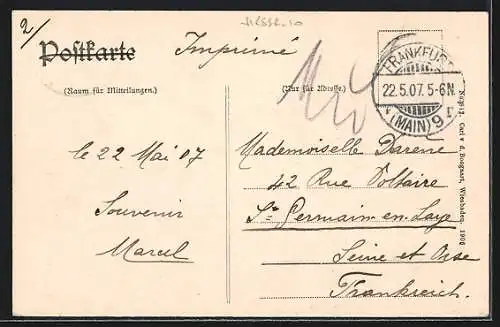 2/
Postkarte
Imprimé
(Raum für Mitteilungen.)
(Nur für Adresse.)
FRANKFURT
22.5.07. 5-6N.
(MAIN) 9
le 22 Mai 07
Souvenir
Marcel
Mademoiselle Darene
42 Rue Voltaire
St Germain-en-Laye
Seine et Oise
Frankreich.
Carl v. d. Boogaart, Wiesbaden, 1906